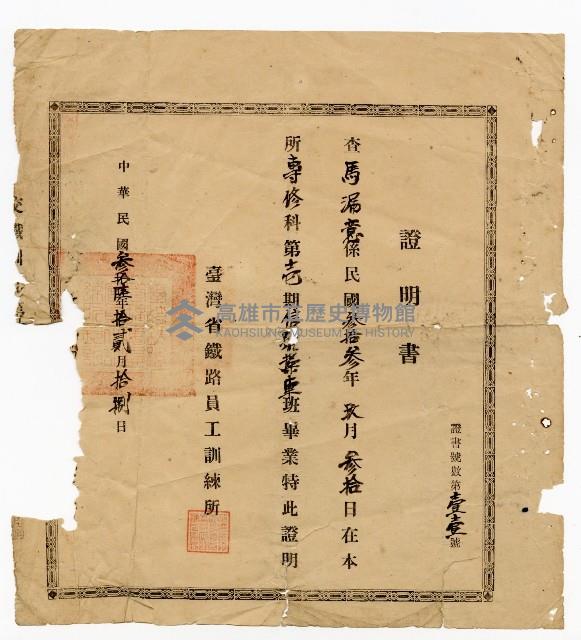 證明書
證書號數第壹壹號
查馬漏意係民國叁拾叁年玖月叁拾日在本
所專修科第壱期班畢業特此證明
臺灣省鐵路員工訓練所
中華民國叁拾陸年拾貳月拾捌日
高雄市立歷史博物館
KAOHSIUNG MUSEUM OF HISTORY